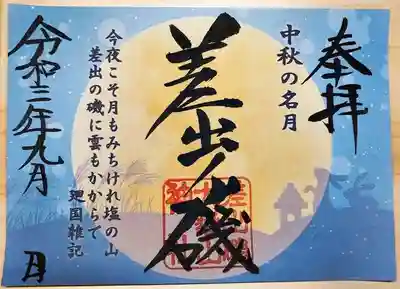 奉拝
中秋の名月
差出ノ磯
今夜こそ月もみちけれ塩の山
差出の磯に雲もかからで
廻国雑記
令和三年九月 日